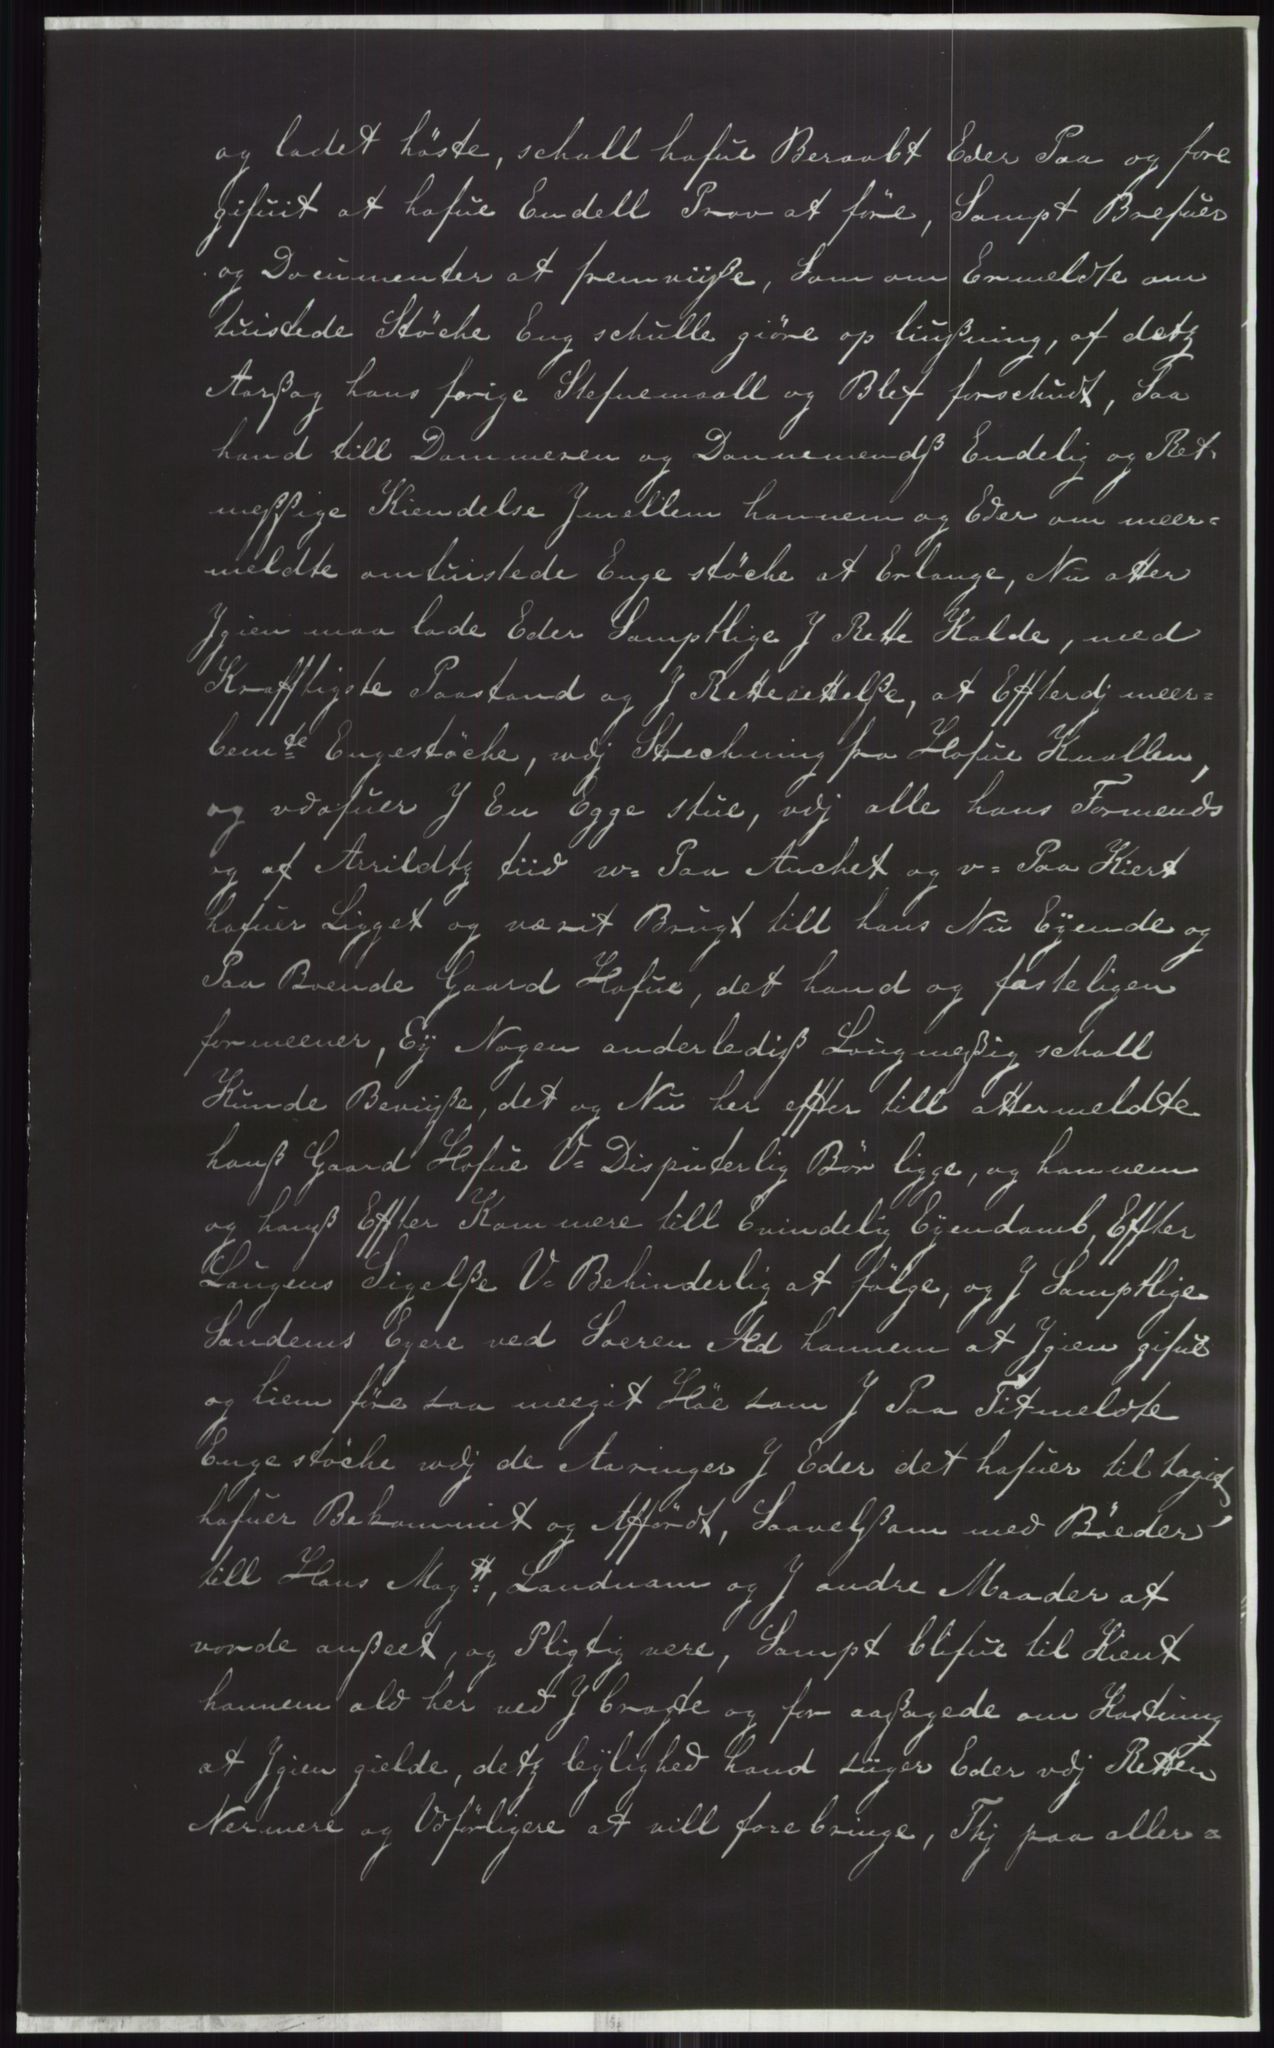 og ladet höste, schall hafue Beraabt Eder Paa og fore
gifuit at hafue Endell Prov at före, Sampt Brefuer
og Documenter at fremviiße, Som om Ermeldte om
tuistede Stöche Eng schulle giöre op liußning, af detz
Aarßag hans forige Stefnemaall og Blef forschudt, Saa
hand till Dommeren og Dannemendß Endelig og Ret-
meßsige Kiendelse Jmellem hannem og Eder om meer=
meldte omtuistede Enge stöche at Erlange, Nu atter
Jgien maa lade Eder Samptlige J Rette Kalde, med
Krafftigste Paastand og J Rettesettelße, at Effterdj meer=
bemte Engestöche, udj Strechning fra Hofue Knallen,
og udofuer J En Egge stue, udj alle hans Formends
og af Arrildtz tiid u= Paa Anchet og u= Paa Kiert
hafuer Ligget og værit Brugt till hans Nu Eÿende og
Paa Boende Gaard Hofue, det hand og fasteligen
formeener, Eÿ Nogen anderlediß Lougmeßig schall
Kunde Beviiße, det og Nu her effter till attermeldte
hanß Gaard Hofue V= Disputerlig Bör ligge, og hannem
og hanß Effter Kommere till Evindelig Eÿendomb, Effter
Laugens Sigelße V= Behinderlig at fölge, og J Samptlige
Sandems Eyere ved Soeren Æd hannem at Jgien gifue
og hiem före saa meegit Höe som J Paa Titmeldte
Enge stöche udj de Aaringer J Eder det hafuer til tagit,
hafuer Bekommit og Affördt, Saavelßom med Böeder
till Hans Maytt, Landnam og J andre Maader at
vorde anßeet, og Pligtig vere, Sampt blifue til Kient
hannem ald her ved J bragte og for aaßagede om Kostning
at Jgien gielde, detz leÿlighed hand siiger Eder vdj Retten
Nermere og Vdförligere at vill forebringe, Thj paa aller=